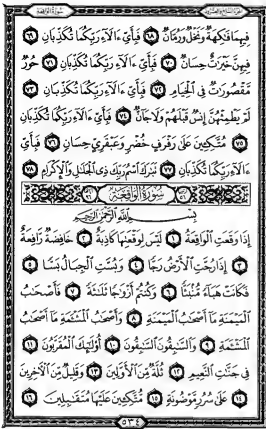 سورة الواقعة الجزء السابع والعشرون
فِيهِمَا فَٰكِهَةٌ وَنَخْلٌ وَرُمَّانٌ ٦٨ فَبِأَيِّ ءَالَآءِ رَبِّكُمَا تُكَذِّبَانِ ٦٩
فِيهِنَّ خَيْرَٰتٌ حِسَانٌ ٧٠ فَبِأَيِّ ءَالَآءِ رَبِّكُمَا تُكَذِّبَانِ ٧١ حُورٌ
مَّقْصُورَٰتٌ فِي الْخِيَامِ ٧٢ فَبِأَيِّ ءَالَآءِ رَبِّكُمَا تُكَذِّبَانِ ٧٣
لَمْ يَطْمِثْهُنَّ إِنسٌ قَبْلَهُمْ وَلَا جَآنٌّ ٧٤ فَبِأَيِّ ءَالَآءِ رَبِّكُمَا تُكَذِّبَانِ
٧٥ مُتَّكِـِٔينَ عَلَىٰ رَفْرَفٍ خُضْرٍ وَعَبْقَرِيٍّ حِسَانٍ ٧٦ فَبِأَيِّ
ءَالَآءِ رَبِّكُمَا تُكَذِّبَانِ ٧٧ تَبَٰرَكَ اسْمُ رَبِّكَ ذِي الْجَلَٰلِ وَالْإِكْرَامِ ٧٨
سُورَةُ الْوَاقِعَةِ
بِسْمِ اللَّهِ الرَّحْمَٰنِ الرَّحِيمِ
إِذَا وَقَعَتِ الْوَاقِعَةُ ١ لَيْسَ لِوَقْعَتِهَا كَاذِبَةٌ ٢ خَافِضَةٌ رَّافِعَةٌ
٣ إِذَا رُجَّتِ الْأَرْضُ رَجًّا ٤ وَبُسَّتِ الْجِبَالُ بَسًّا ٥
فَكَانَتْ هَبَآءً مُّنۢبَثًّا ٦ وَكُنتُمْ أَزْوَٰجًا ثَلَٰثَةً ٧ فَأَصْحَٰبُ
الْمَيْمَنَةِ مَآ أَصْحَٰبُ الْمَيْمَنَةِ ٨ وَأَصْحَٰبُ الْمَشْـَٔمَةِ مَآ أَصْحَٰبُ
الْمَشْـَٔمَةِ ٩ وَالسَّٰبِقُونَ السَّٰبِقُونَ ١٠ أُو۟لَٰٓئِكَ الْمُقَرَّبُونَ ١١
فِي جَنَّٰتِ النَّعِيمِ ١٢ ثُلَّةٌ مِّنَ الْأَوَّلِينَ ١٣ وَقَلِيلٌ مِّنَ الْـَٔاخِرِينَ
١٤ عَلَىٰ سُرُرٍ مَّوْضُونَةٍ ١٥ مُّتَّكِـِٔينَ عَلَيْهَا مُتَقَٰبِلِينَ ١٦
٥٣٤